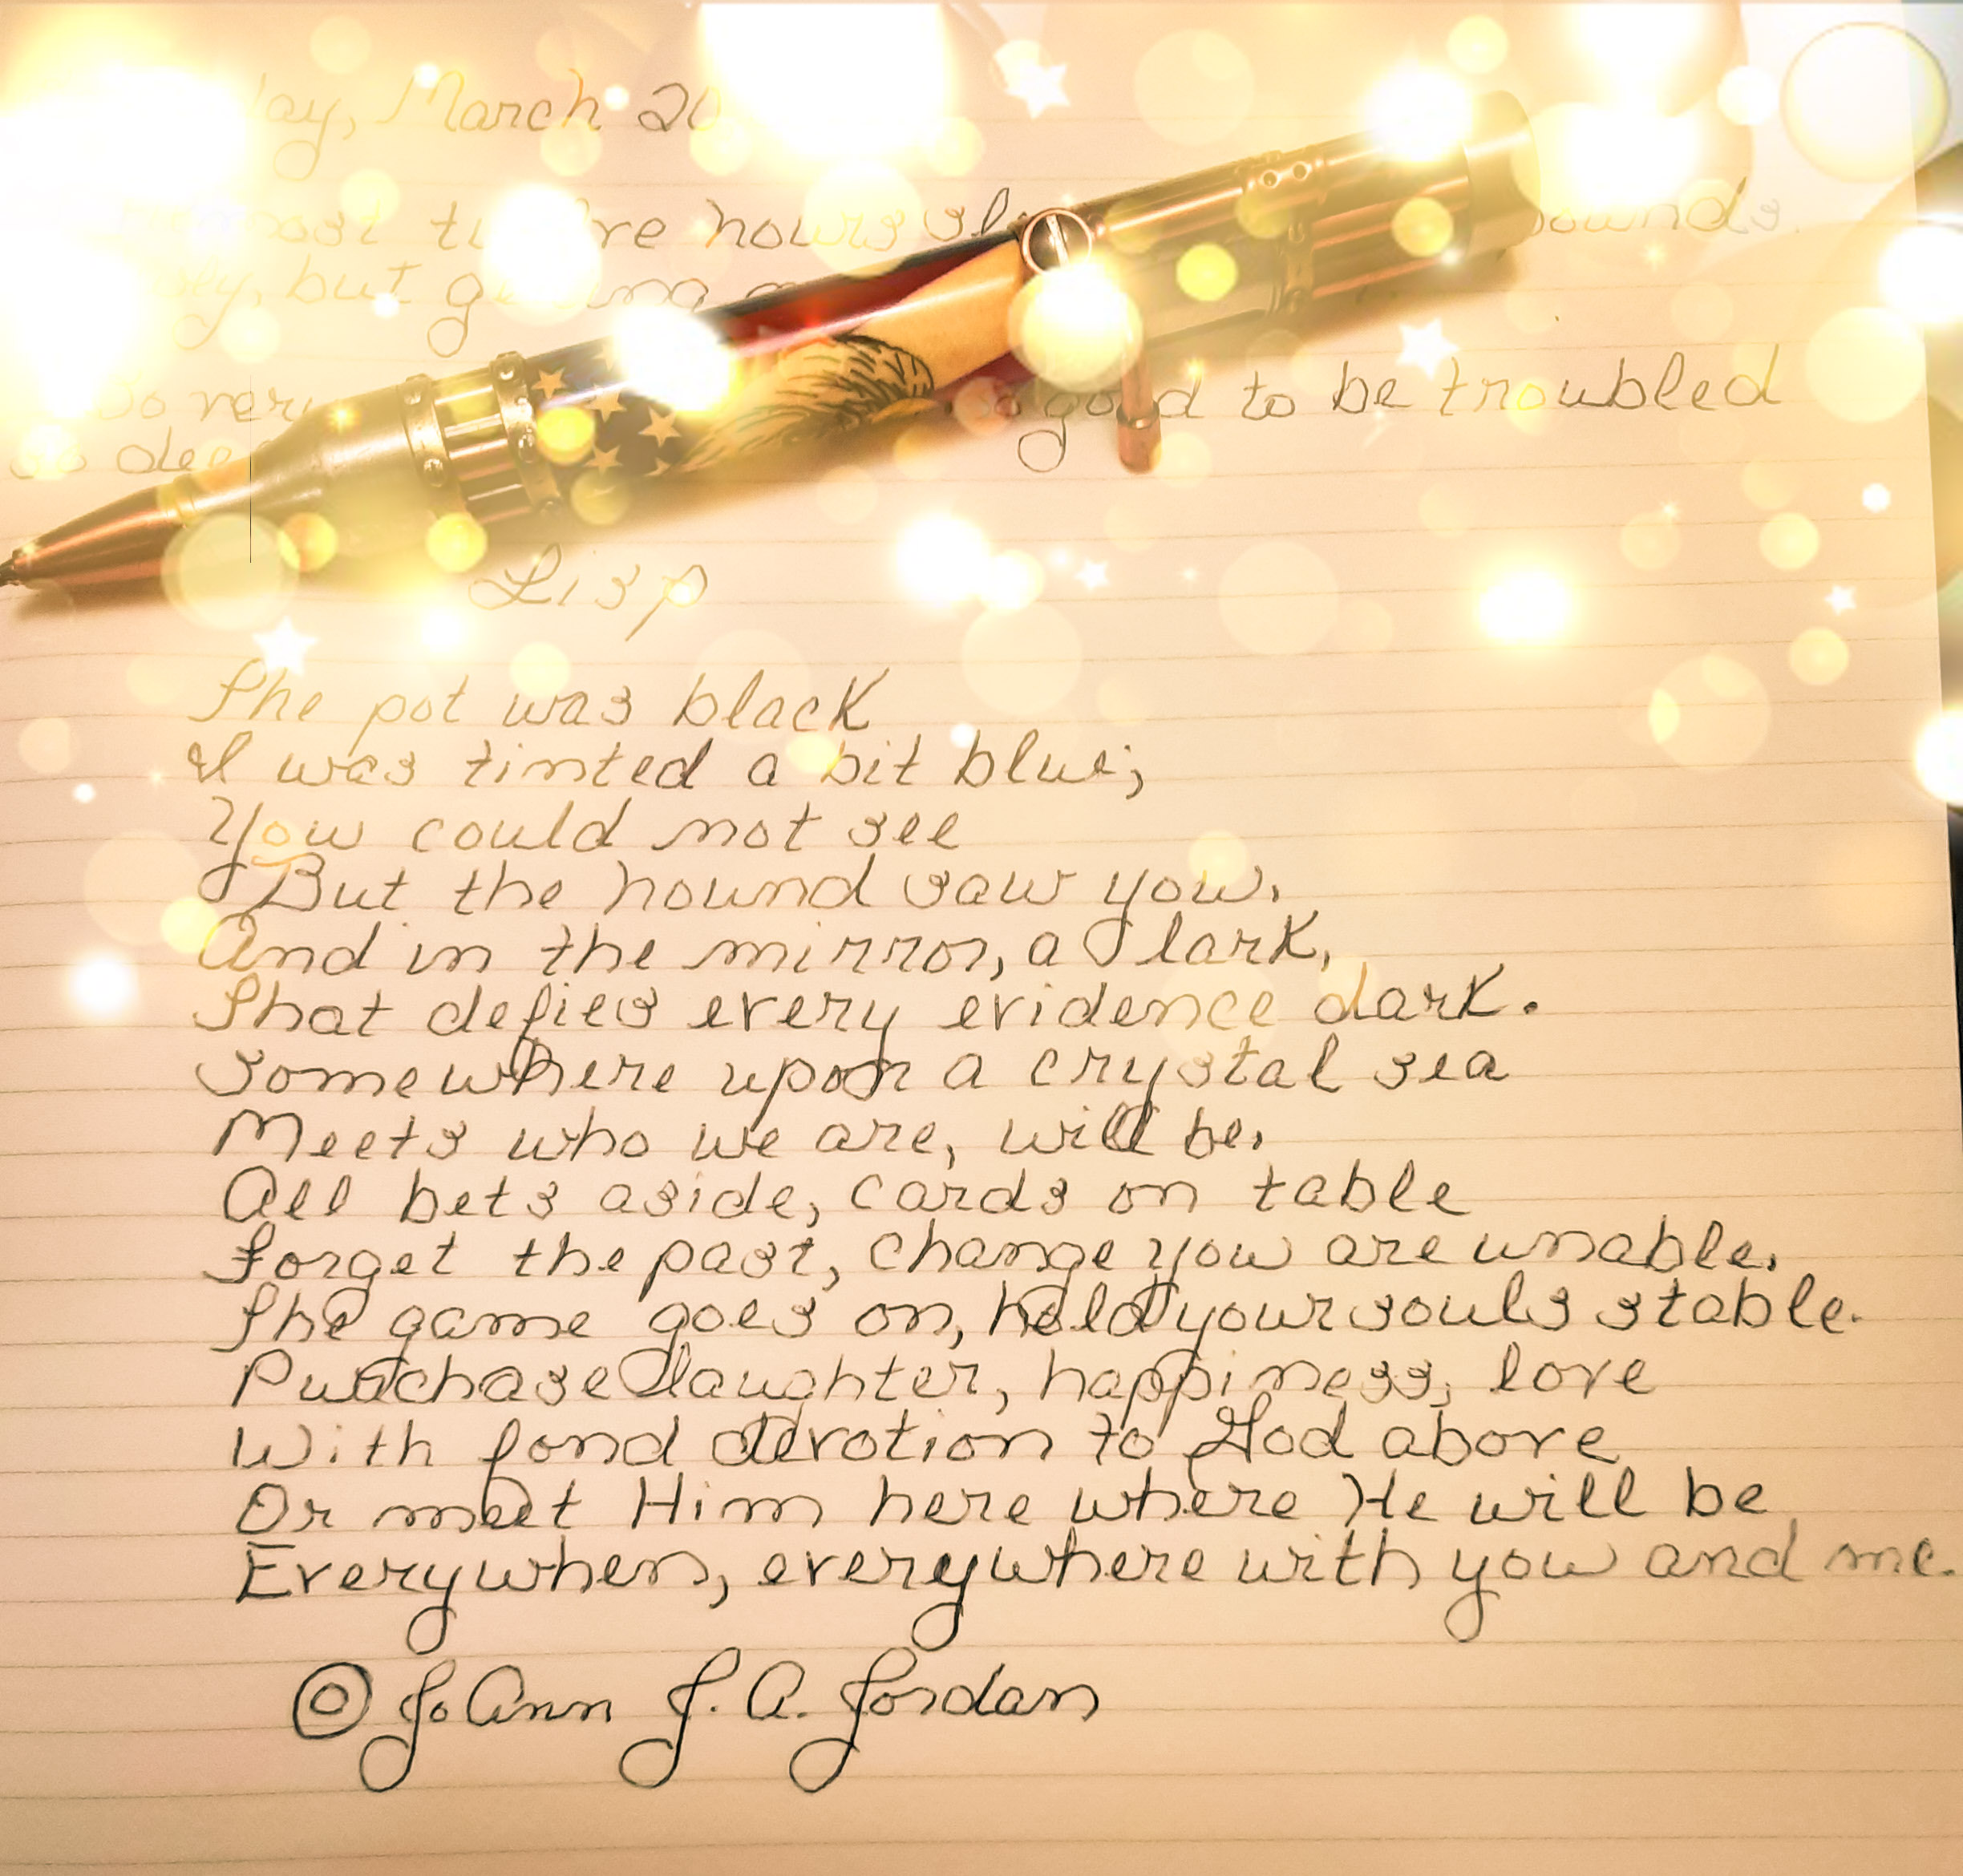 March 20
hours
but
to be troubled
so
Lisp
The pot was black
I was tinted a bit blue;
You could not see
But the hound saw you.
And in the mirror, a lark,
That defies every evidence dark.
Somewhere upon a crystal sea
Meets who we are, will be.
All bets aside, cards on table
Forget the past, change you are unable.
The game goes on, hold your souls stable.
Purchase laughter, happiness, love
With fond devotion to God above
Or meet Him here where He will be
Everywhen, everywhere with you and me.
© JoAnn J. A. Jordan